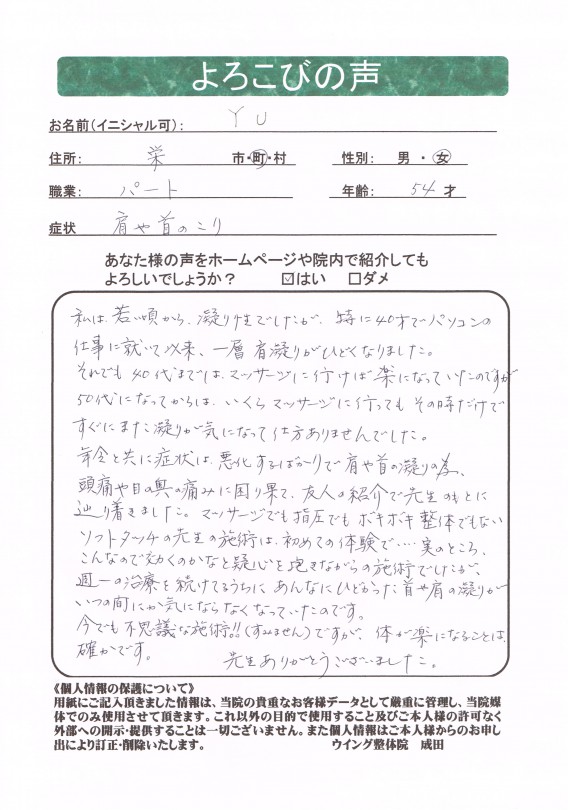 よろこびの声
お名前(イニシャル可): YU
住所: 栄 市・町・村 性別: 男・女
職業: パート 年齢: 54才
症状 肩や首のこり
あなた様の声をホームページや院内で紹介しても
よろしいでしょうか? ☑はい □ダメ
私は、若い頃から、凝り性でしたが、特に40才でパソコンの
仕事に就いて以来、一層肩凝りがひどくなりました。
それでも40代までは、マッサージに行けば楽になっていたのですが
50代になってからは、いくらマッサージに行ってもその時だけで
すぐにまた凝りが気になって仕方ありませんでした。
年令と共に症状は、悪化するばかりで肩や首の凝りの為、
頭痛や目の奥の痛みに困り果て、友人の紹介で先生のもとに
辿り着きました。マッサージでも指圧でもボキボキ整体でもない
ソフトタッチの先生の施術は、初めての体験で‥‥実のところ、
こんなので効くのかなと疑心を抱きながらの施術でしたが、
週一の治療を続けてるうちにあんなにひどかった首や肩の凝りが
いつの間にか気にならなくなっていたのです。
今でも不思議な施術!!(すみません)ですが、体が楽になることは、
確かです。 先生ありがとうございました。
《個人情報の保護について》
用紙にご記入頂きました情報は、当院の貴重なお客様データとして厳重に管理し、当院媒
体でのみ使用させて頂きます。これ以外の目的で使用すること及びご本人様の許可なく
外部への開示・提供することは一切ございません。また個人情報はご本人様からのお申し
出により訂正・削除いたします。 ウイング整体院 成田